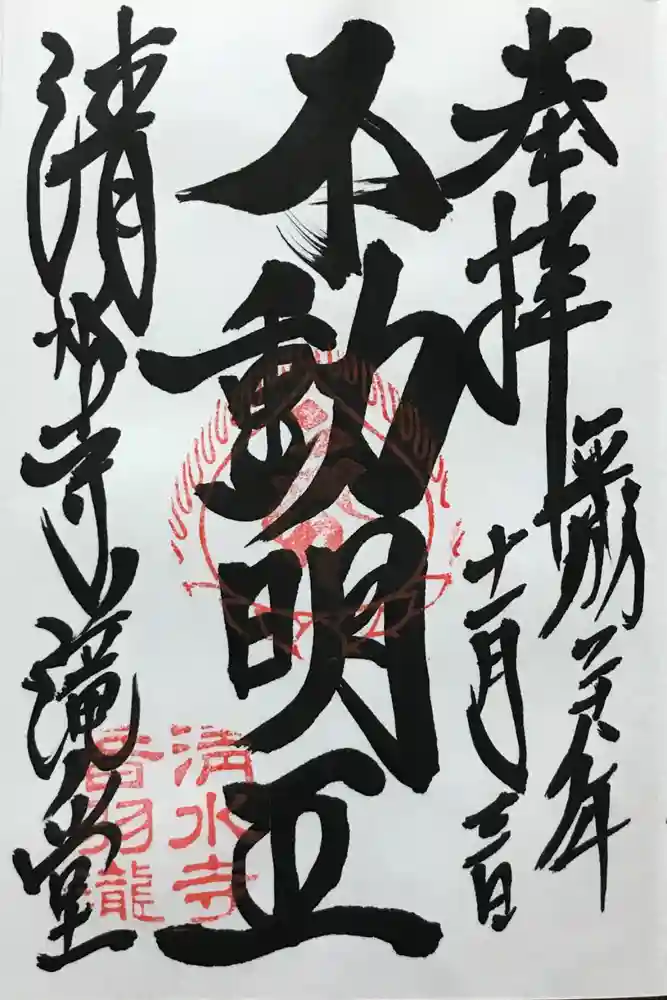 奉拝
平成二十八年
十一月
日
不動明王
清水寺滝堂
清水寺
音羽瀧